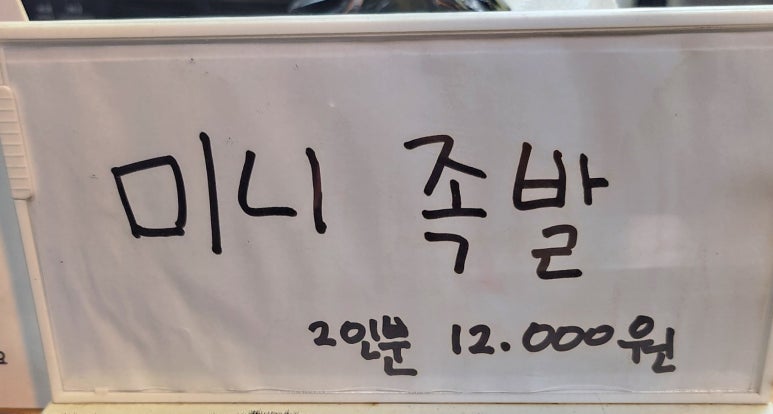 미니 족발
2인분 12.000원